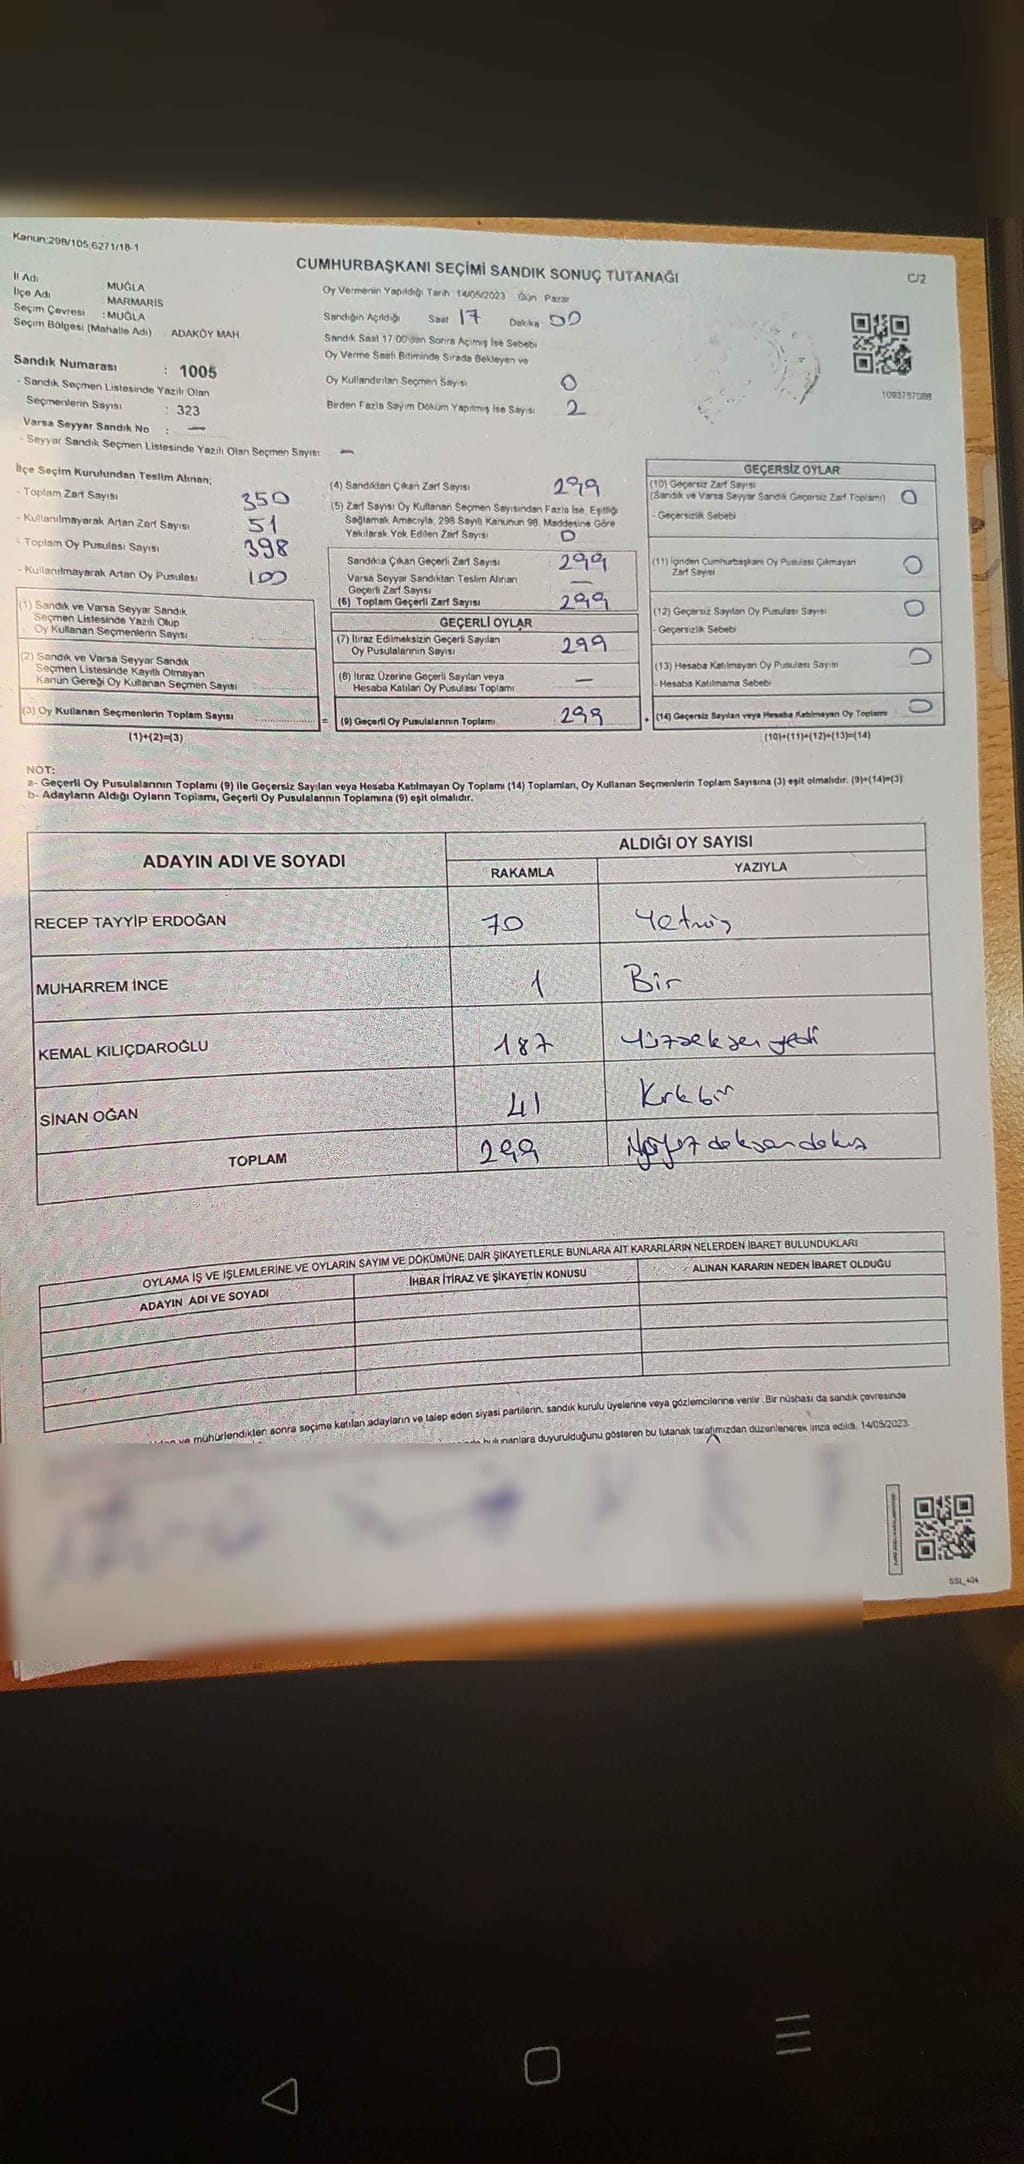 Kanun:298/105,6271/18-1
CUMHURBAŞKANI SEÇİMİ SANDIK SONUÇ TUTANAĞI
C/2
İl Adı : MUĞLA
İlçe Adı : MARMARİS
Seçim Çevresi : MUĞLA
Seçim Bölgesi (Mahalle Adı) ADAKÖY MAH
Oy Vermenin Yapıldığı Tarih 14/05/2023 Gün Pazar
Sandığın Açıldığı Saat 17 Dakika 00
Sandık Saat 17 00'den Sonra Açımış İse Sebebi
Oy Verme Saati Bitiminde Sırada Bekleyen ve
Oy Kullandırılan Seçmen Sayısı 0
Birden Fazla Sayım Döküm Yapılmış İse Sayısı 2
1093757088
Sandık Numarası : 1005
- Sandık Seçmen Listesinde Yazılı Olan
Seçmenlerin Sayısı : 323
Varsa Seyyar Sandık No : —
- Seyyar Sandık Seçmen Listesinde Yazılı Olan Seçmen Sayısı: —
İlçe Seçim Kurulundan Teslim Alınan;
- Toplam Zarf Sayısı 350
- Kullanılmayarak Artan Zarf Sayısı 51
- Toplam Oy Pusulası Sayısı 398
- Kullanılmayarak Artan Oy Pusulası 100
(1) Sandık ve Varsa Seyyar Sandık
Seçmen Listesinde Yazılı Olup
Oy Kullanan Seçmenlerin Sayısı
(2) Sandık ve Varsa Seyyar Sandık
Seçmen Listesinde Kayıtlı Olmayan
Kanun Gereği Oy Kullanan Seçmen Sayısı
(3) Oy Kullanan Seçmenlerin Toplam Sayısı
(1)+(2)=(3)
(4) Sandıktan Çıkan Zarf Sayısı 299
(5) Zarf Sayısı Oy Kullanan Seçmen Sayısından Fazla İse, Eşitliği
Sağlamak Amacıyla, 298 Sayılı Kanunun 98. Maddesine Göre
Yakılarak Yok Edilen Zarf Sayısı 0
Sandıkta Çıkan Geçerli Zarf Sayısı 299
Varsa Seyyar Sandıktan Teslim Alınan
Geçerli Zarf Sayısı —
(6) Toplam Geçerli Zarf Sayısı 299
GEÇERLİ OYLAR
(7) İtiraz Edilmeksizin Geçerli Sayılan
Oy Pusulalarının Sayısı 299
(8) İtiraz Üzerine Geçerli Sayılan veya
Hesaba Katılan Oy Pusulası Toplamı —
= (9) Geçerli Oy Pusulalarının Toplamı 299
GEÇERSİZ OYLAR
(10) Geçersiz Zarf Sayısı
(Sandık ve Varsa Seyyar Sandık Geçersiz Zarf Toplamı) 0
- Geçersizlik Sebebi
(11) İçinden Cumhurbaşkanı Oy Pusulası Çıkmayan
Zarf Sayısı 0
(12) Geçersiz Sayılan Oy Pusulası Sayısı 0
- Geçersizlik Sebebi
(13) Hesaba Katılmayan Oy Pusulası Sayısı 0
- Hesaba Katılmama Sebebi
+ (14) Geçersiz Sayılan veya Hesaba Katılmayan Oy Toplamı 0
(10)+(11)+(12)+(13)=(14)
NOT:
a- Geçerli Oy Pusulalarının Toplamı (9) ile Geçersiz Sayılan veya Hesaba Katılmayan Oy Toplamı (14) Toplamları, Oy Kullanan Seçmenlerin Toplam Sayısına (3) eşit olmalıdır. (9)+(14)=(3)
b- Adayların Aldığı Oyların Toplamı, Geçerli Oy Pusulalarının Toplamına (9) eşit olmalıdır.
ADAYIN ADI VE SOYADI ALDIĞI OY SAYISI
RAKAMLA YAZIYLA
RECEP TAYYİP ERDOĞAN 70 Yetmiş
MUHARREM İNCE 1 Bir
KEMAL KILIÇDAROĞLU 187 Yüzseksenyedi
SİNAN OĞAN 41 Kırkbir
TOPLAM 299 doksandokuz
OYLAMA İŞ VE İŞLEMLERİNE VE OYLARIN SAYIM VE DÖKÜMÜNE DAİR ŞİKAYETLERLE BUNLARA AİT KARARLARIN NELERDEN İBARET BULUNDUKLARI
ADAYIN ADI VE SOYADI İHBAR İTİRAZ VE ŞİKAYETİN KONUSU ALINAN KARARIN NEDEN İBARET OLDUĞU
ve mühürlendikten sonra seçime katılan adayların ve talep eden siyasi partilerin, sandık kurulu üyelerine veya gözlemcilerine verilir. Bir nüshası da sandık çevresinde
bulunanlara duyurulduğunu gösteren bu tutanak tarafımızdan düzenlenerek imza edildi. 14/05/2023
SSL_404